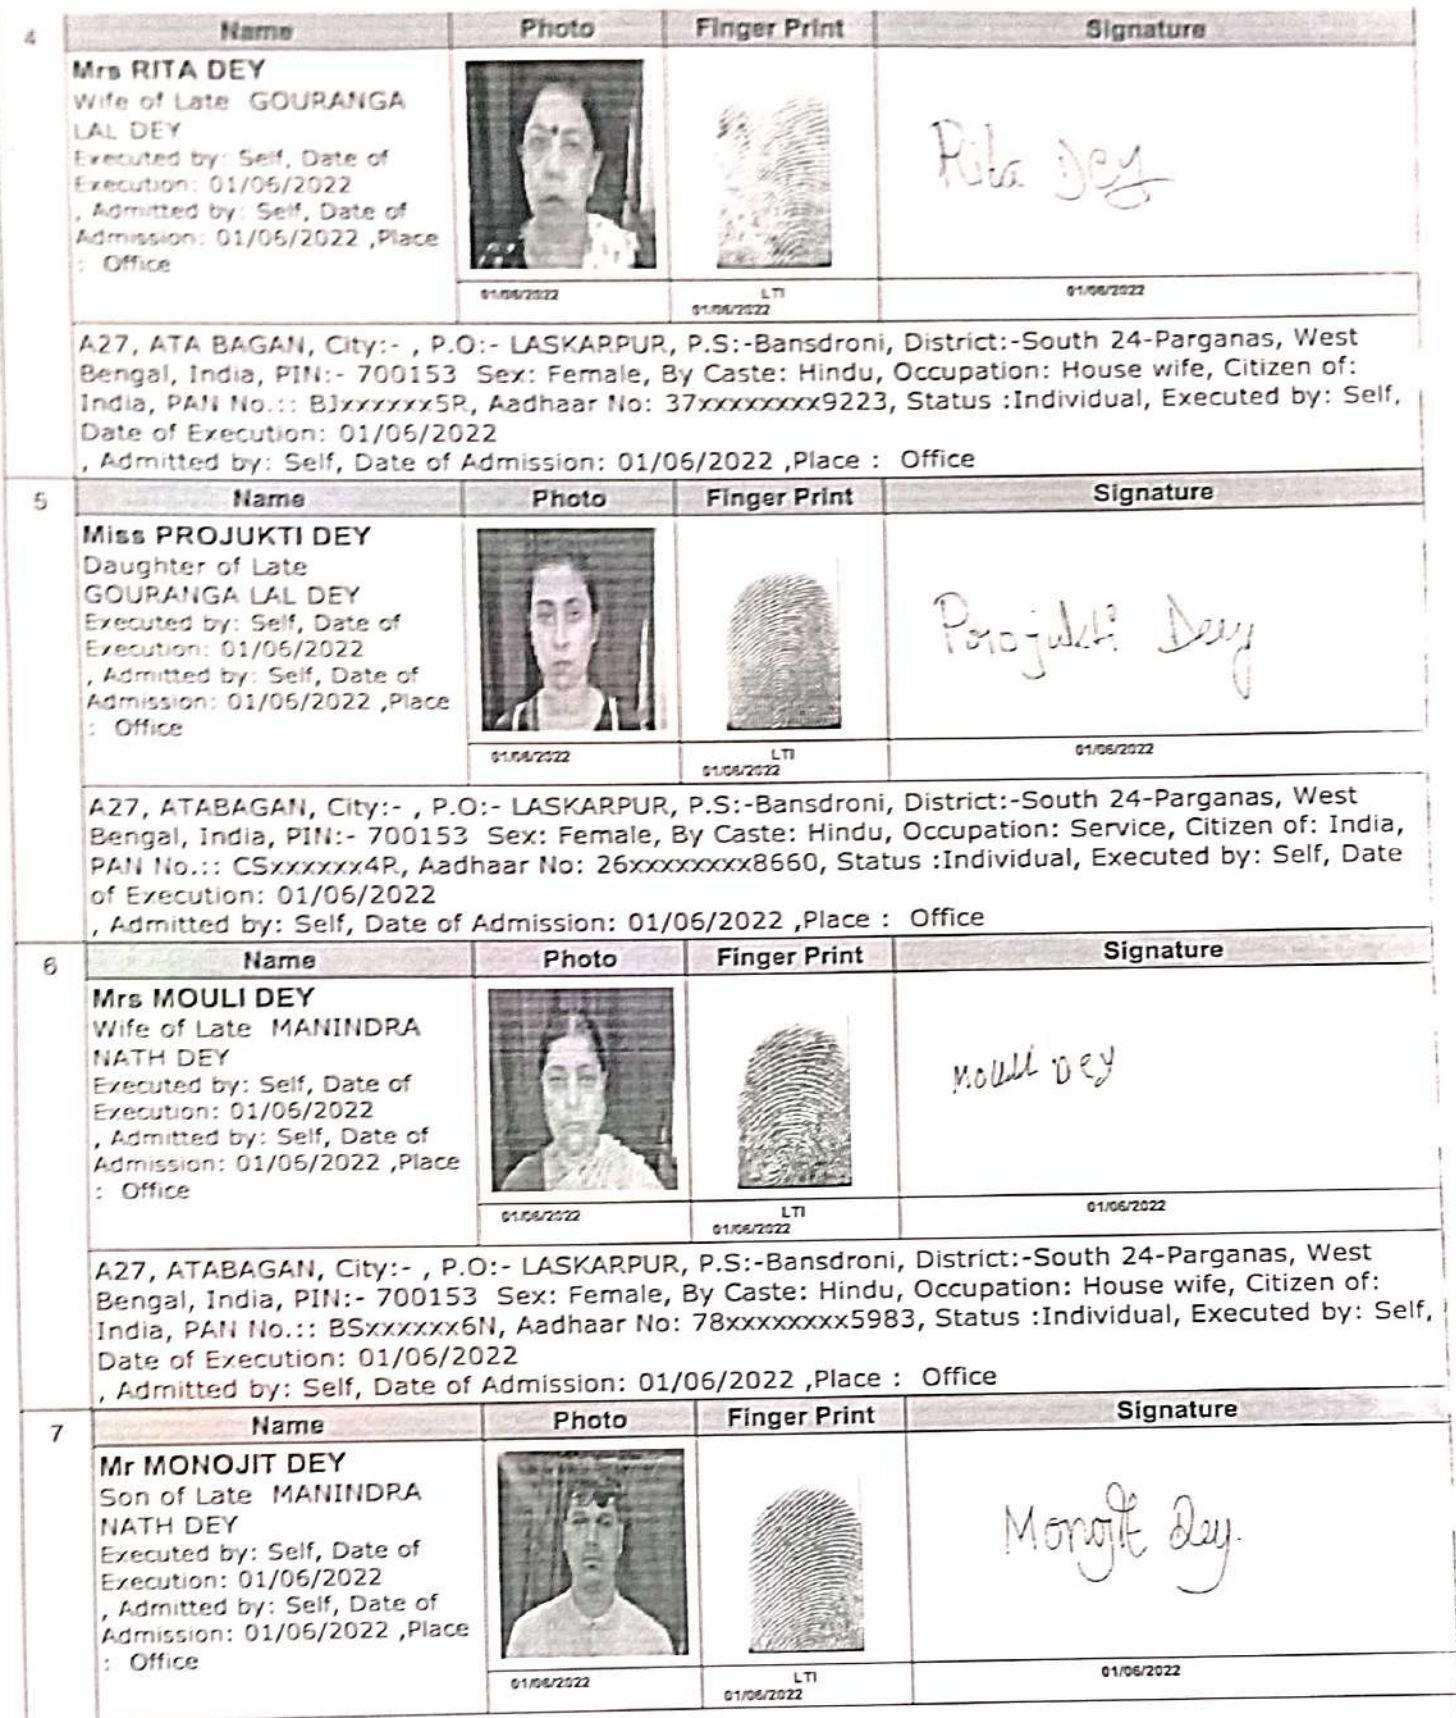 4 Name Photo Finger Print Signature
Mrs RITA DEY
Wife of Late GOURANGA
LAL DEY
Executed by: Self, Date of
Execution: 01/06/2022
, Admitted by: Self, Date of
Admission: 01/06/2022 ,Place
: Office
Rita Dey
01/06/2022 LTI 01/06/2022
01/06/2022
A27, ATA BAGAN, City:- , P.O:- LASKARPUR, P.S:-Bansdroni, District:-South 24-Parganas, West
Bengal, India, PIN:- 700153 Sex: Female, By Caste: Hindu, Occupation: House wife, Citizen of:
India, PAN No.:: BJxxxxxx5R, Aadhaar No: 37xxxxxxxx9223, Status :Individual, Executed by: Self,
Date of Execution: 01/06/2022
, Admitted by: Self, Date of Admission: 01/06/2022 ,Place : Office
5 Name Photo Finger Print Signature
Miss PROJUKTI DEY
Daughter of Late
GOURANGA LAL DEY
Executed by: Self, Date of
Execution: 01/06/2022
, Admitted by: Self, Date of
Admission: 01/06/2022 ,Place
: Office
Projukti Dey
01/06/2022 LTI 01/06/2022
01/06/2022
A27, ATABAGAN, City:- , P.O:- LASKARPUR, P.S:-Bansdroni, District:-South 24-Parganas, West
Bengal, India, PIN:- 700153 Sex: Female, By Caste: Hindu, Occupation: Service, Citizen of: India,
PAN No.:: CSxxxxxx4R, Aadhaar No: 26xxxxxxxx8660, Status :Individual, Executed by: Self, Date
of Execution: 01/06/2022
, Admitted by: Self, Date of Admission: 01/06/2022 ,Place : Office
6 Name Photo Finger Print Signature
Mrs MOULI DEY
Wife of Late MANINDRA
NATH DEY
Executed by: Self, Date of
Execution: 01/06/2022
, Admitted by: Self, Date of
Admission: 01/06/2022 ,Place
: Office
Mouli Dey
01/06/2022 LTI 01/06/2022
01/06/2022
A27, ATABAGAN, City:- , P.O:- LASKARPUR, P.S:-Bansdroni, District:-South 24-Parganas, West
Bengal, India, PIN:- 700153 Sex: Female, By Caste: Hindu, Occupation: House wife, Citizen of:
India, PAN No.:: BSxxxxxx6N, Aadhaar No: 78xxxxxxxx5983, Status :Individual, Executed by: Self,
Date of Execution: 01/06/2022
, Admitted by: Self, Date of Admission: 01/06/2022 ,Place : Office
7 Name Photo Finger Print Signature
Mr MONOJIT DEY
Son of Late MANINDRA
NATH DEY
Executed by: Self, Date of
Execution: 01/06/2022
, Admitted by: Self, Date of
Admission: 01/06/2022 ,Place
: Office
Monojit Dey.
01/06/2022 LTI 01/06/2022
01/06/2022